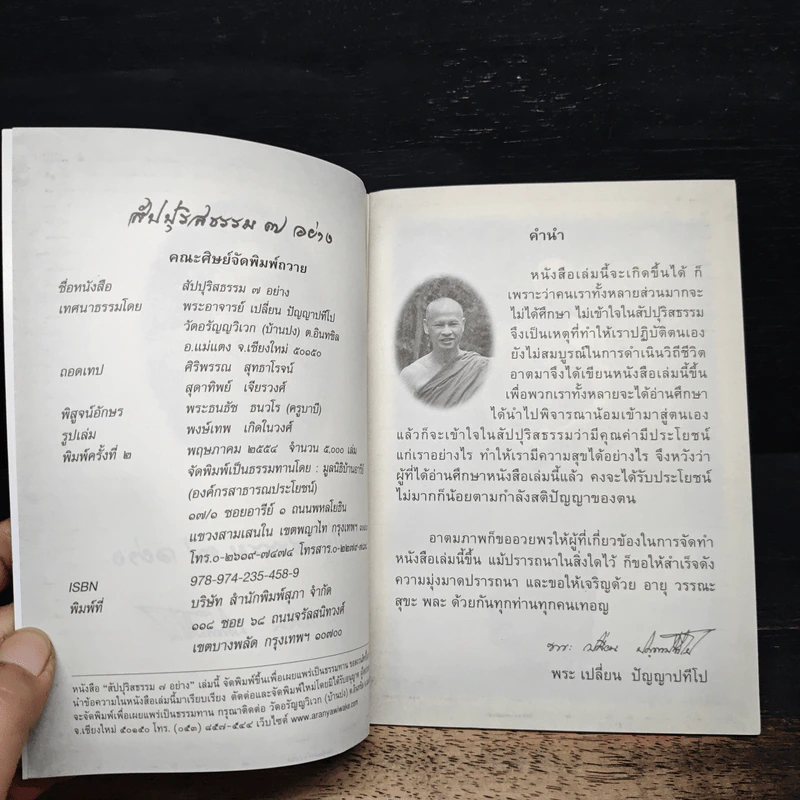 สัปปุริสธรรม ๗ อย่าง
คณะศิษย์จัดพิมพ์ถวาย
ชื่อหนังสือ สัปปุริสธรรม ๗ อย่าง
เทศนาธรรมโดย พระอาจารย์ เปลี่ยน ปัญญาปทีโป
วัดอรัญญวิเวก (บ้านปง) ต.อินทขิล
อ.แม่แตง จ.เชียงใหม่ ๕๐๑๕๐
ถอดเทป ศิริพรรณ สุทธาโรจน์
สุดาทิพย์ เจียรวงศ์
พิสูจน์อักษร พระธนธัช ธนวโร (ครูบาบี)
รูปเล่ม พงษ์เทพ เกิดในวงศ์
พิมพ์ครั้งที่ ๒ พฤษภาคม ๒๕๕๔ จำนวน ๕,๐๐๐ เล่ม
จัดพิมพ์เป็นธรรมทานโดย : มูลนิธิบ้านอารีย์
(องค์กรสาธารณประโยชน์)
๑๗/๑ ซอยอารีย์ ๑ ถนนพหลโยธิน
แขวงสามเสนใน เขตพญาไท กรุงเทพฯ
โทร.๐-๒๖๑๙-๗๔๗๔ โทรสาร.
ISBN 978-974-235-458-9
พิมพ์ที่ บริษัท สำนักพิมพ์สุภา จำกัด
๑๑๘ ซอย ๖๘ ถนนจรัลสนิทวงศ์
เขตบางพลัด กรุงเทพฯ ๑๐๗๐๐
หนังสือ "สัปปุริสธรรม ๗ อย่าง" เล่มนี้ จัดพิมพ์ขึ้นเพื่อเผยแพร่เป็นธรรมทาน
นำข้อความในหนังสือเล่มนี้มาเรียบเรียง ดัดต่อและจัดพิมพ์ใหม่โดยมิได้รับอนุญาต
จะจัดพิมพ์เพื่อเผยแพร่เป็นธรรมทาน กรุณาติดต่อ วัดอรัญญวิเวก (บ้านปง)
จ.เชียงใหม่ ๕๐๑๕๐ โทร. (๐๕๓) ๘๕๗-๕๔๔ เว็บไซต์ www.aranyawiweke.com
คำนำ
หนังสือเล่มนี้จะเกิดขึ้นได้ ก็
เพราะว่าคนเราทั้งหลายส่วนมากจะ
ไม่ได้ศึกษา ไม่เข้าใจในสัปปุริสธรรม
จึงเป็นเหตุที่ทำให้เราปฏิบัติตนเอง
ยังไม่สมบูรณ์ในการดำเนินวิถีชีวิต
อาตมาจึงได้เขียนหนังสือเล่มนี้ขึ้น
เพื่อพวกเราทั้งหลายจะได้อ่านศึกษา
ได้นำไปพิจารณาน้อมเข้ามาสู่ตนเอง
แล้วก็จะเข้าใจในสัปปุริสธรรมว่ามีคุณค่ามีประโยชน์
แก่เราอย่างไร ทำให้เรามีความสุขได้อย่างไร จึงหวังว่า
ผู้ที่ได้อ่านศึกษาหนังสือเล่มนี้แล้ว คงจะได้รับประโยชน์
ไม่มากก็น้อยตามกำลังสติปัญญาของตน
อาตมภาพก็ขออวยพรให้ผู้ที่เกี่ยวข้องในการจัดทำ
หนังสือเล่มนี้ขึ้น แม้ปรารถนาในสิ่งใดไว้ ก็ขอให้สำเร็จดัง
ความมุ่งมาดปรารถนา และขอให้เจริญด้วย อายุ วรรณะ
สุขะ พละ ด้วยกันทุกท่านทุกคนเทอญ
พระ เปลี่ยน ปัญญาปทีโป